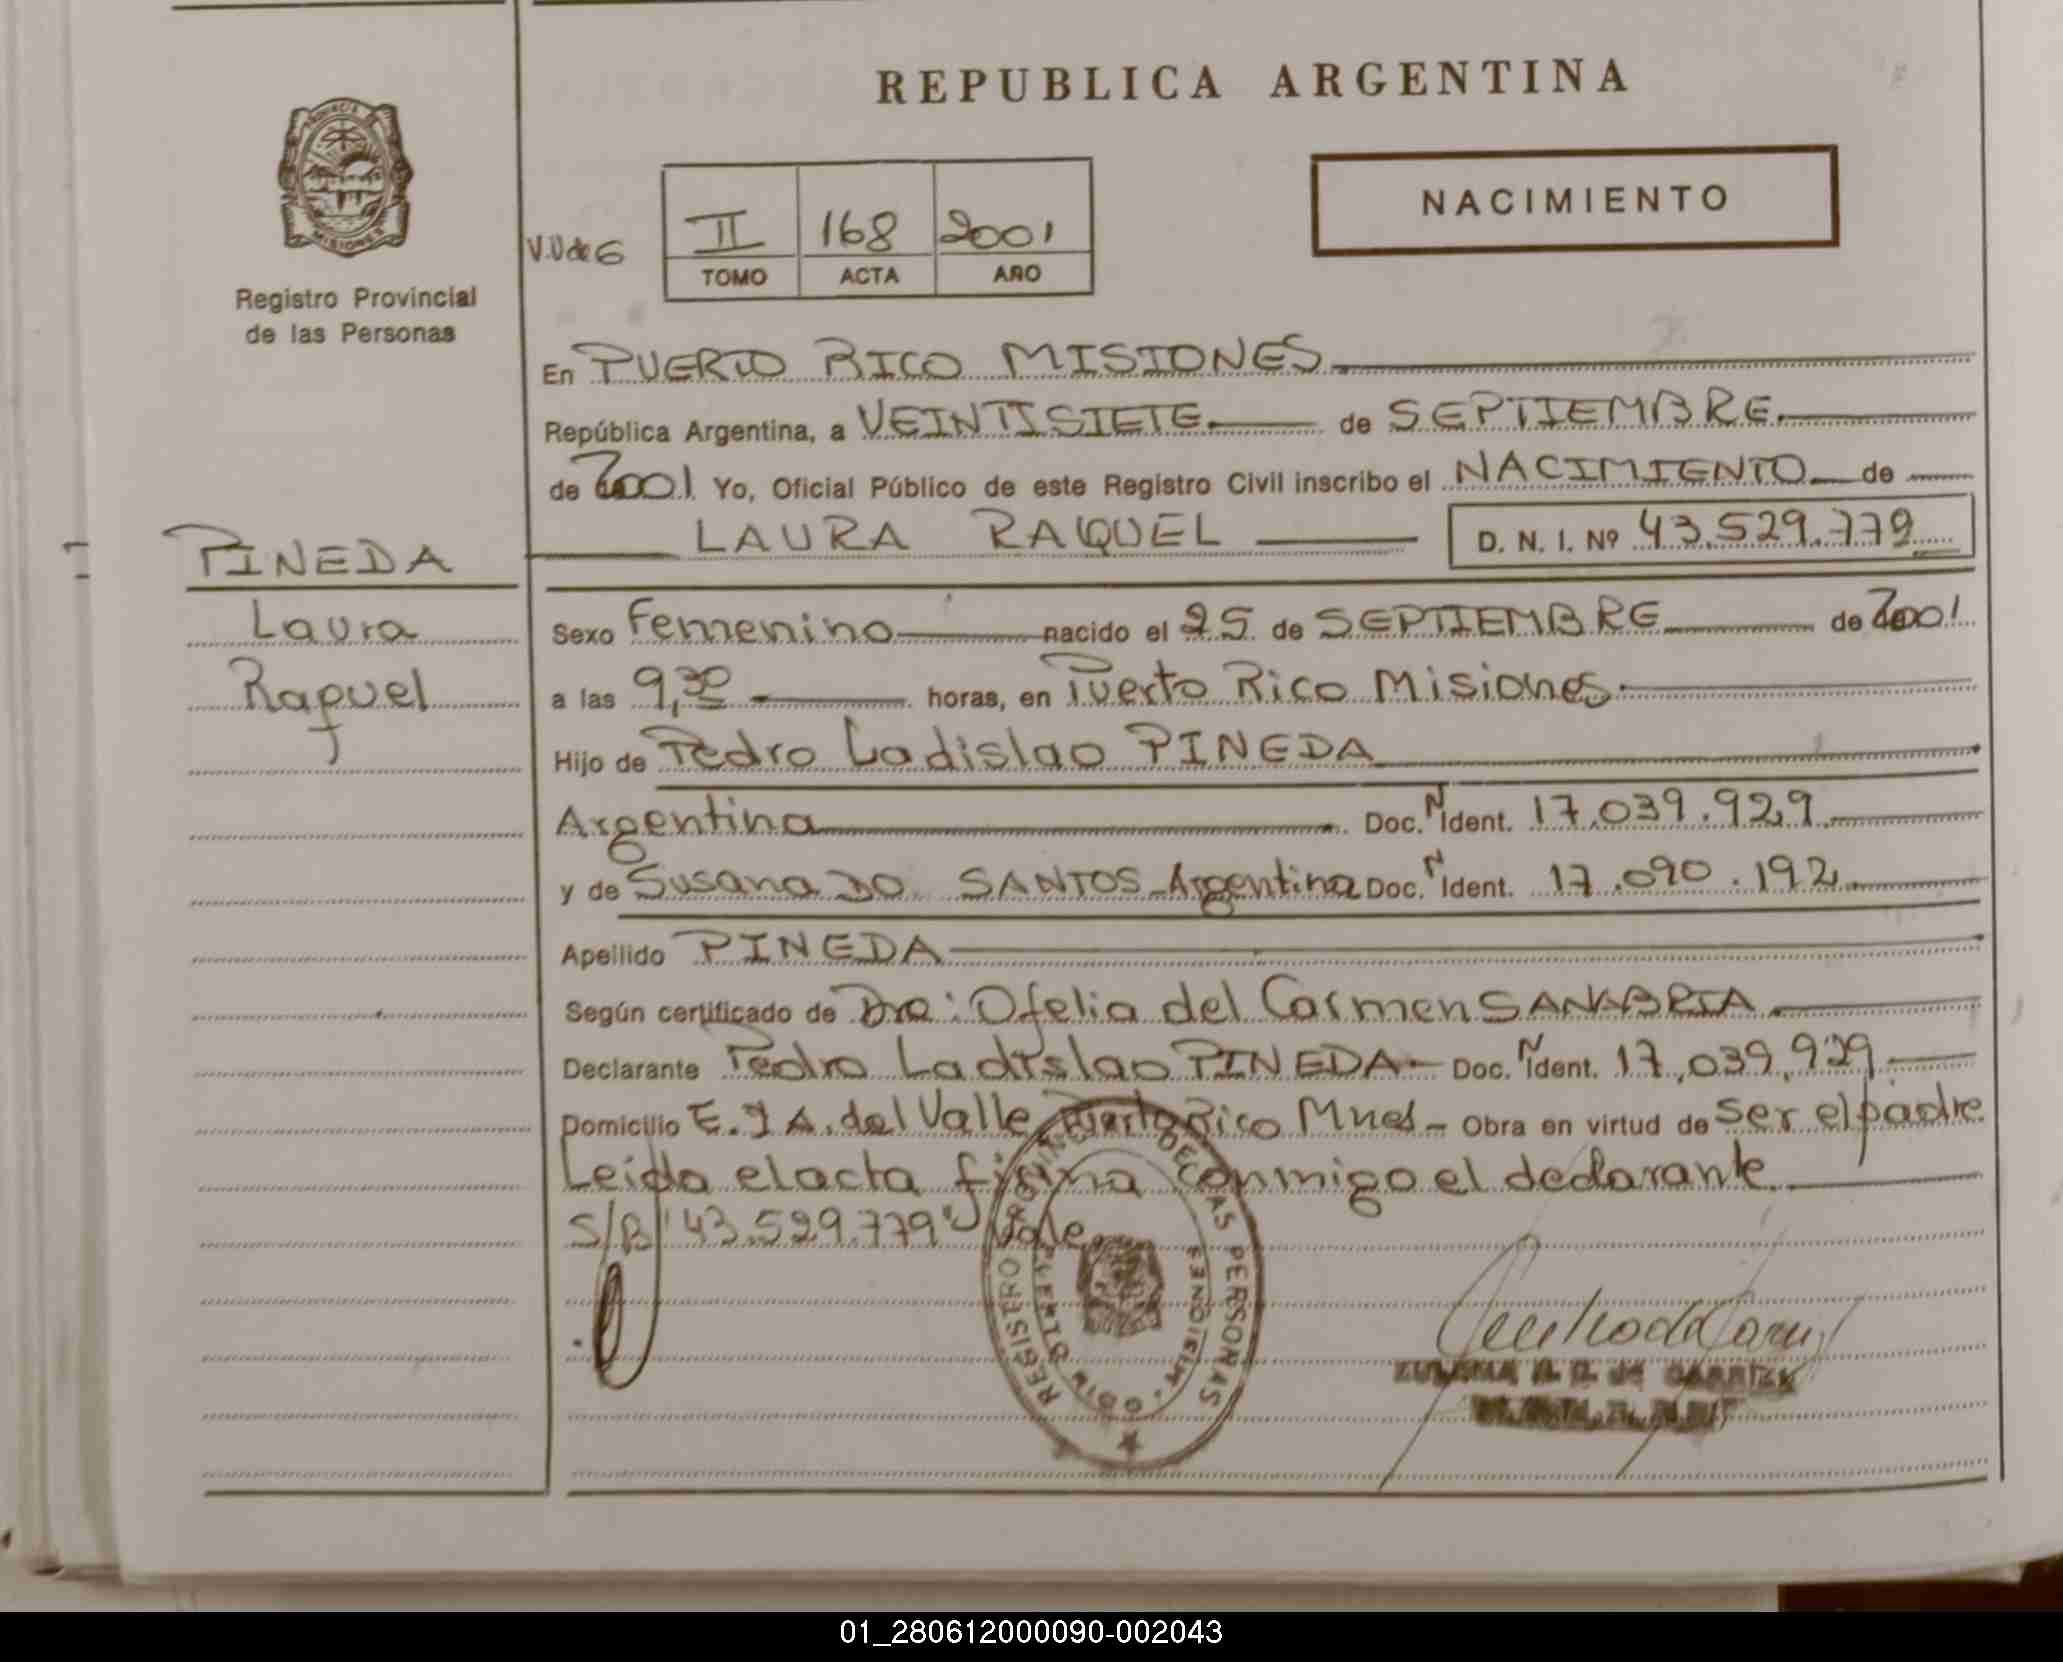 REPUBLICA ARGENTINA
NACIMIENTO
PROVINCIA DE
MISIONES
Registro Provincial
de las Personas
V.U de 6
II 168 2001
TOMO ACTA AÑO
En PUERTO RICO MISIONES
República Argentina, a VEINTISIETE de SEPTIEMBRE
de 2001 Yo, Oficial Público de este Registro Civil inscribo el NACIMIENTO de
LAURA RAQUEL D. N. I. Nº 43.529.779
PINEDA
Laura
Raquel
Sexo Femenino nacido el 25 de SEPTIEMBRE de 2001
a las 9,30 horas, en Puerto Rico Misiones
Hijo de Pedro Ladislao PINEDA
Argentina Doc. N Ident. 17.039.929
y de Susana DO SANTOS Argentina Doc. N Ident. 17.090.192
Apellido PINEDA
Según certificado de Dra: Ofelia del Carmen SANABRIA
Declarante Pedro Ladislao PINEDA Doc. N Ident. 17,039,929
Domicilio E. I A. del Valle Puerto Rico Mnes Obra en virtud de ser el padre
Leida el acta firma conmigo el declarante
S/B "43.529.779" Vale
REGISTRO DE LAS PERSONAS
01_280612000090-002043